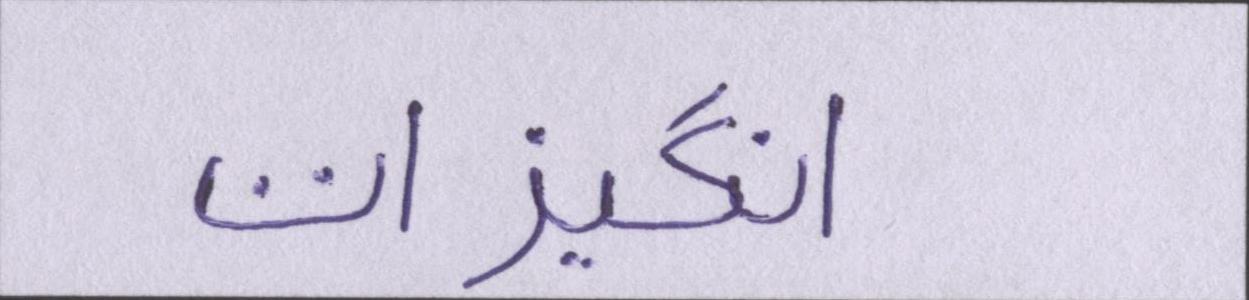 انگیزات